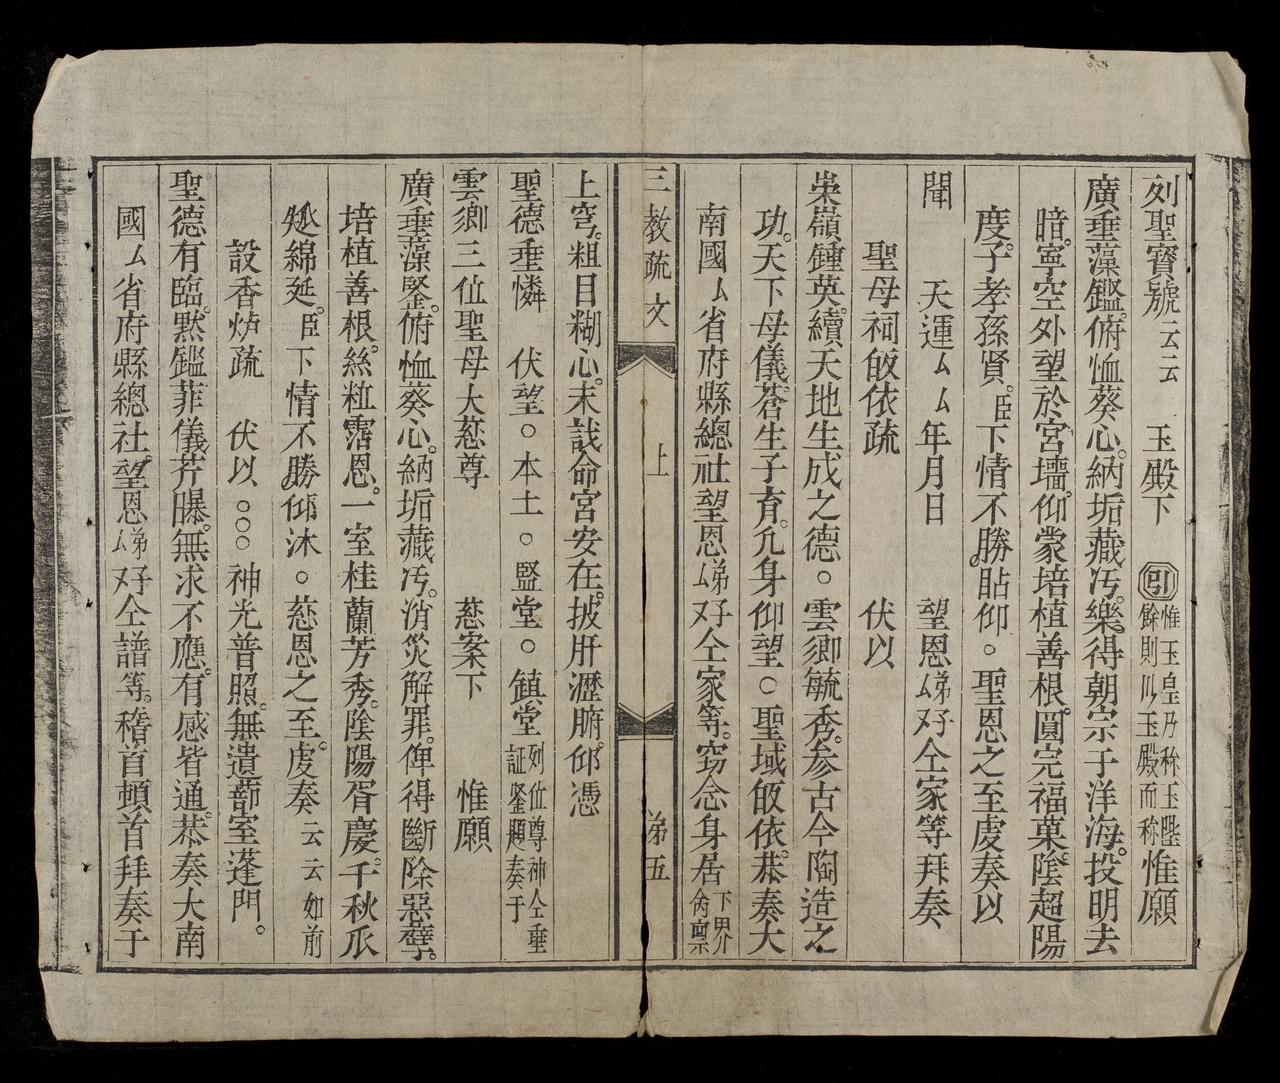 列聖寳號云云　玉殿下　引惟玉皇乃称玉陛餘則以玉殿而称惟願
廣垂藻鑑。俯恤葵心。納垢藏汚。樂得朝宗于洋海。投明去
暗。寧空外望於宮墻。仰蒙培植善根。圓完福菓。陰超陽
度。子孝孫賢。臣下情不勝貼仰。聖恩之至虔奏以
聞　天運厶厶年月日　望恩弟厶妤仝家等拜奏
聖母祠皈依疏　伏以
嵗嶺鍾英。續天地生成之德。雲鄉毓秀。参古今陶造之
功。天下母儀。蒼生子育。凢身仰望。聖域皈依。恭奏大
南國厶省府縣總社望恩弟厶妤仝家等。窃念身居下界禽禀
三教疏文　上　第五
上穹。粗目糊心。未戠命宮安在。披肝瀝腑。仰憑
聖德垂憐　伏望。本土。監堂。鎮堂列位尊神仝垂証鑒題奏于
雲鄉三位聖母大慈尊　慈案下　惟願
廣垂藻鑒。俯恤葵心。納垢藏汚。消災解罪。俾得斷除惡孽。
培植善根。絲粒霑恩。一室桂蘭芳秀。陰陽胥慶。千秋瓜
瓞綿延。臣下情不勝仰沐。慈恩之至。虔奏云云如前
設香炉疏　伏以。。。神光普照。無遺蔀室蓬門。
聖德有臨。黙鑑菲儀芹曝。無求不應。有感皆通。恭奏大南
國厶省府縣總社。望恩弟厶妤仝譜等。稽首頓首拜奏于